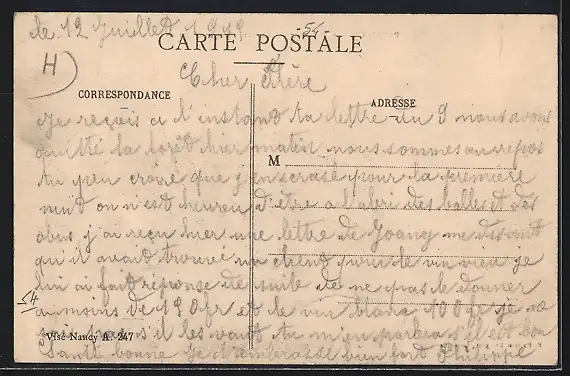 le 12 Juillet 1918
54
CARTE POSTALE
H)
Cher Frère
CORRESPONDANCE
ADRESSE
je reçois a l'instant ta lettre du 9 nous avons
quitté la forêt hier matin nous sommes au repos
M
tu peu croire que j'en scrase pour la première
nuit on n'est heureu d'être a l'abri des balles et des
obus j'ai reçu hier une lettre de Joancy me disant
qu'il avait trouvé un client pour le vin vieu je
lui ai fait réponse de suite de ne pas le donner
54
a moins de 190 fr et le vin blanc 100 fr je ne
pas s'il les vaut tu m'en parleras s'il est bon
Visé Nancy A. 247
Santé bonne je t'embrasse bien fort Philippe